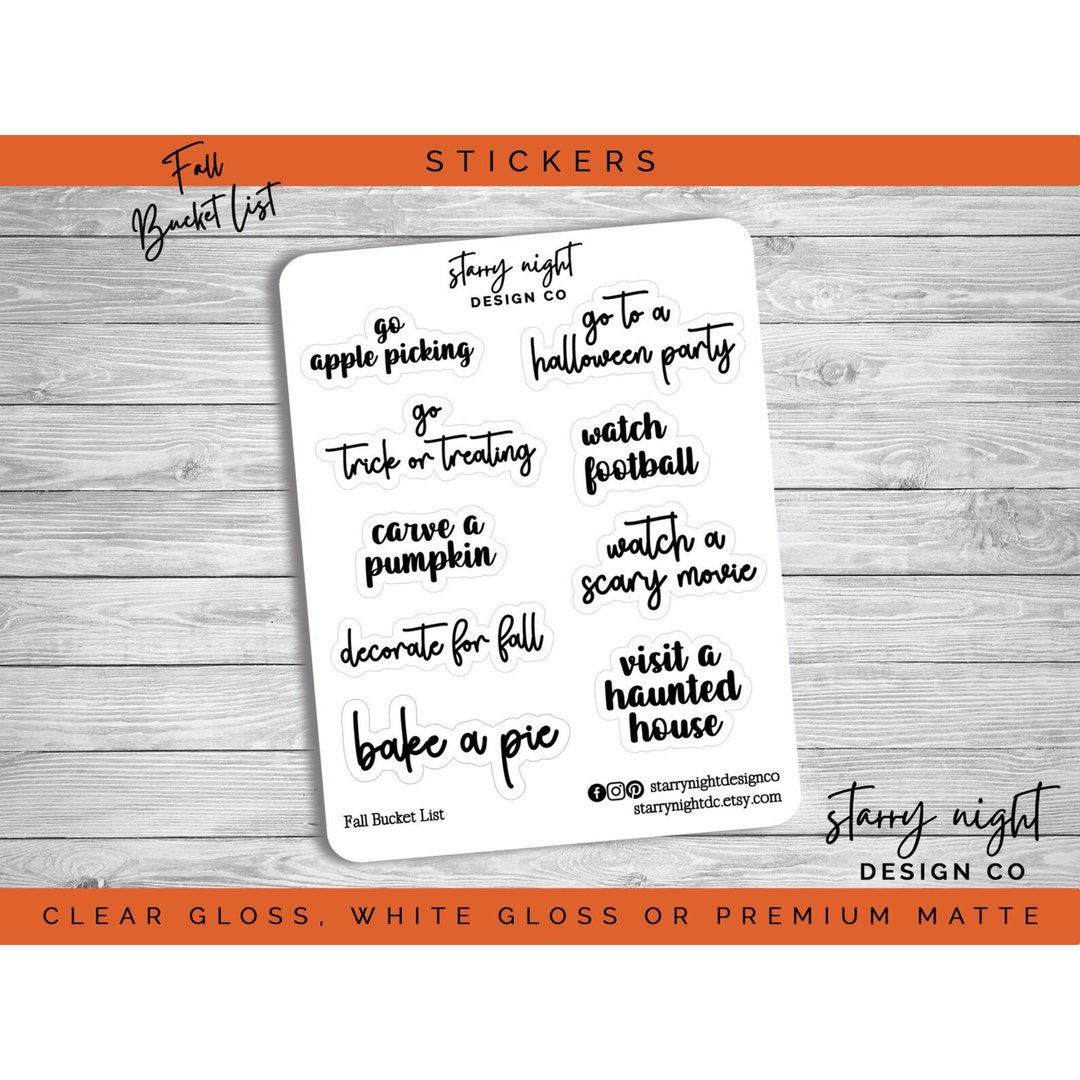 STICKERS
Fall
Bucket List
starry night
DESIGN CO
go
apple picking
go to a
halloween party
go
trick or treating
watch
football
carve a
pumpkin
watch a
scary movie
decorate for fall
visit a
haunted
house
bake a pie
starrynightdesignco
starrynightdc.etsy.com
Fall Bucket List
starry night
DESIGN CO
CLEAR GLOSS, WHITE GLOSS OR PREMIUM MATTE